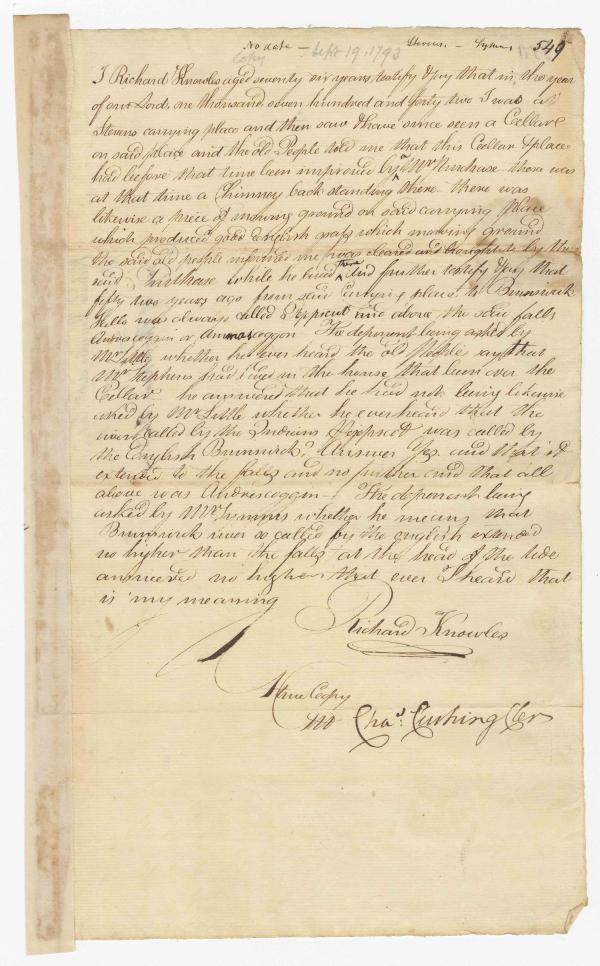 No date — Sept 19. 1793 Stevens. — 549
Copy
I Richard Knowles aged seventy six years, testify & say that in the year
of our Lord, one thousand seven hundred and forty two I was at
Stevens carrying place and then saw & have since seen a Cellar
on said place and the old People told me that this Cellar & place
had before that time been improved by Mr Purchase there was
at that time a Chimney back standing there there was
likewise a piece of mowing ground on said carrying place
which produced good English grass which mowing ground
the said old people informed me was cleared and brought to by the
said Purchase while he lived there And further testify & say that
fifty two years ago from said Carrying place to Brunswick
Falls was always called Pejepscut and above the said falls
Androscoggin or Ammoscoggon The deponent being asked by
Mr Little whether he ever heard the old People say that
Mr Stephens had lived in the house that been over the
Cellar he answered that he had not being likewise
asked by Mr Little whether he ever heard that the
river called by the Indians Pejepscot was called by
the English Brunswick? Answer Yes. and that it
extended to the falls and no further and that all
above was Androscoggin — The deponent being
asked by Mr whether he meany that
Brunswick river so called by the english extended
no higher than the falls at the head of the tide
answered no higher that ever I heard that
is my meaning
Richard Knowles
A true Copy
Att Chas. Cushing Cler